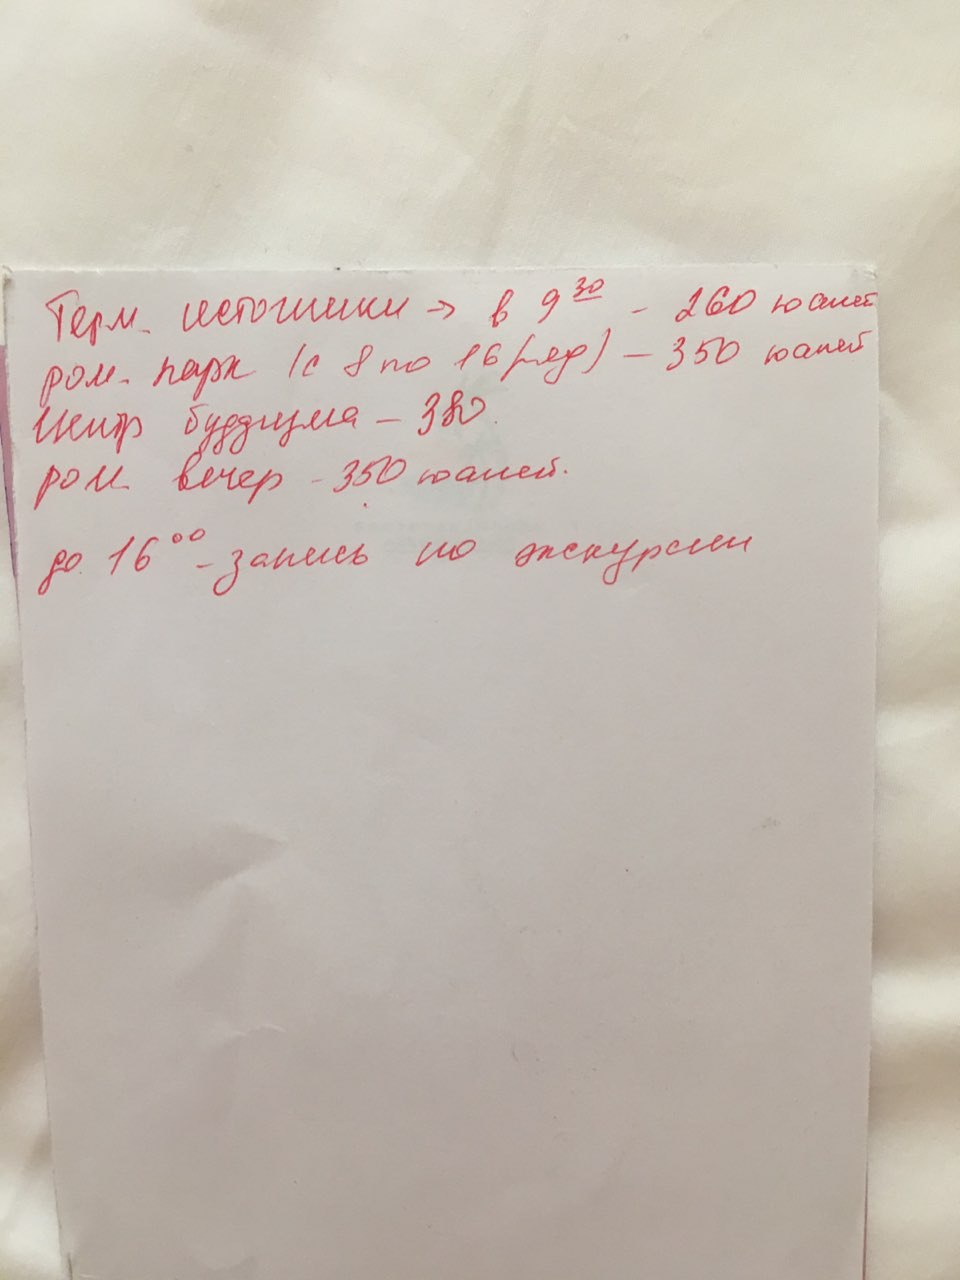 Терм. источники → в 9 30 - 260 юаней
ром. парк (с 8 по 16 ряд) - 350 юаней
Центр буддизма - 380.
ром. вечер - 350 юаней.
до 16 00 - запись по экскурсии